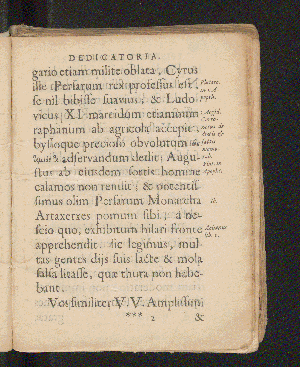 DEDICATORIA.
gario etiam milite oblata, Cyrus
ille Persarum rex professus est
se nil bibisse suavius; & Ludo
vicus XI. marcidum etiamnum
raphanum ab agricola accepit,
byssoque precioso obvolutum
& adservandum dedit: Augu-
stus ab ejusdem sortis homine
calamos non renuit; & potentis
simus olim Persarum Monarcha
Artaxerxes pomum sibi, a ne-
scio quo, exhibitum hilari fronte
apprehendit. sic legimus, mul-
tas gentes diis suis lacte & mola
salsa litasse, qua thura non habe-
bant.
Vos similiter V. V. Amplissimi
*** 2 &
Plutarc.
in
apoph.
Id.
lib. 1.